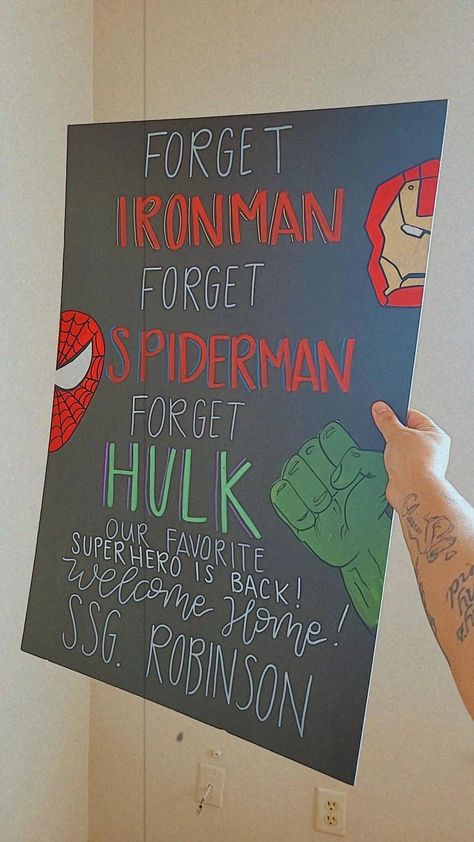 FORGET
IRONMAN
FORGET
SPIDERMAN
FORGET
HULK
OUR FAVORITE
SUPERHERO IS BACK!
Welcome Home!
SSG. ROBINSON